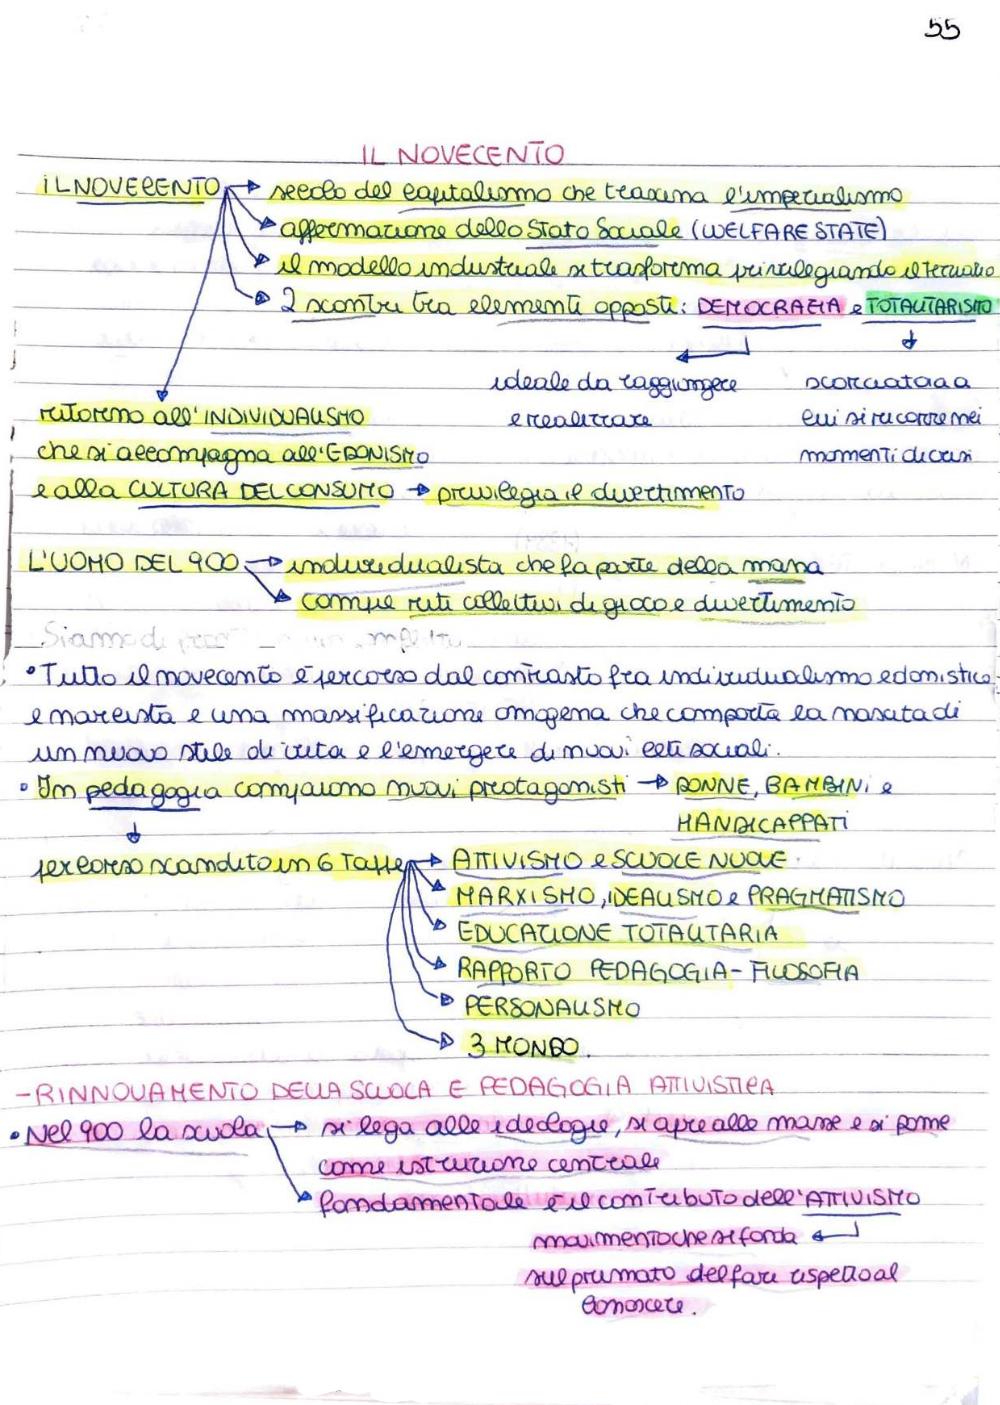 55
IL NOVECENTO
IL NOVECENTO → secolo del capitalismo che trascina l'imperialismo
→ affermazione dello Stato Sociale (WELFARE STATE)
→ il modello industriale si trasforma privilegiando il terziario
→ 2 scontri tra elementi opposti: DEMOCRAZIA e TOTALITARISMO
ideale da raggiungere
e realizzare
scorciatoia a
cui si ricorre nei
momenti di crisi
ritorno all'INDIVIDUALISMO
che si accompagna all'EDONISMO
e alla CULTURA DEL CONSUMO → privilegia il divertimento
L'UOMO DEL 900 → individualista che fa parte della massa
→ compie riti collettivi di gioco e divertimento
Siamo di
• Tutto il novecento è percorso dal contrasto fra individualismo edonistico
e una massificazione omogena che comporta la nascita di
un nuovo stile di vita e l'emergere di nuovi ceti sociali.
• In pedagogia compaiono nuovi protagonisti → DONNE, BAMBINI e
HANDICAPPATI
percorso scandito in 6 Tappe → ATTIVISMO e SCUOLE NUOVE
→ MARXISMO, IDEALISMO e PRAGMATISMO
→ EDUCAZIONE TOTALITARIA
→ RAPPORTO PEDAGOGIA-FILOSOFIA
→ PERSONALISMO
→ 3 MONDO.
- RINNOVAMENTO DELLA SCUOLA E PEDAGOGIA ATTIVISTICA
• Nel 900 la scuola → si lega alle ideologie, si apre alle masse e si pone
come istruzione centrale
→ fondamentale è il contributo dell'ATTIVISMO
movimento che si fonda ←
sul primato del fare rispetto al
conoscere.